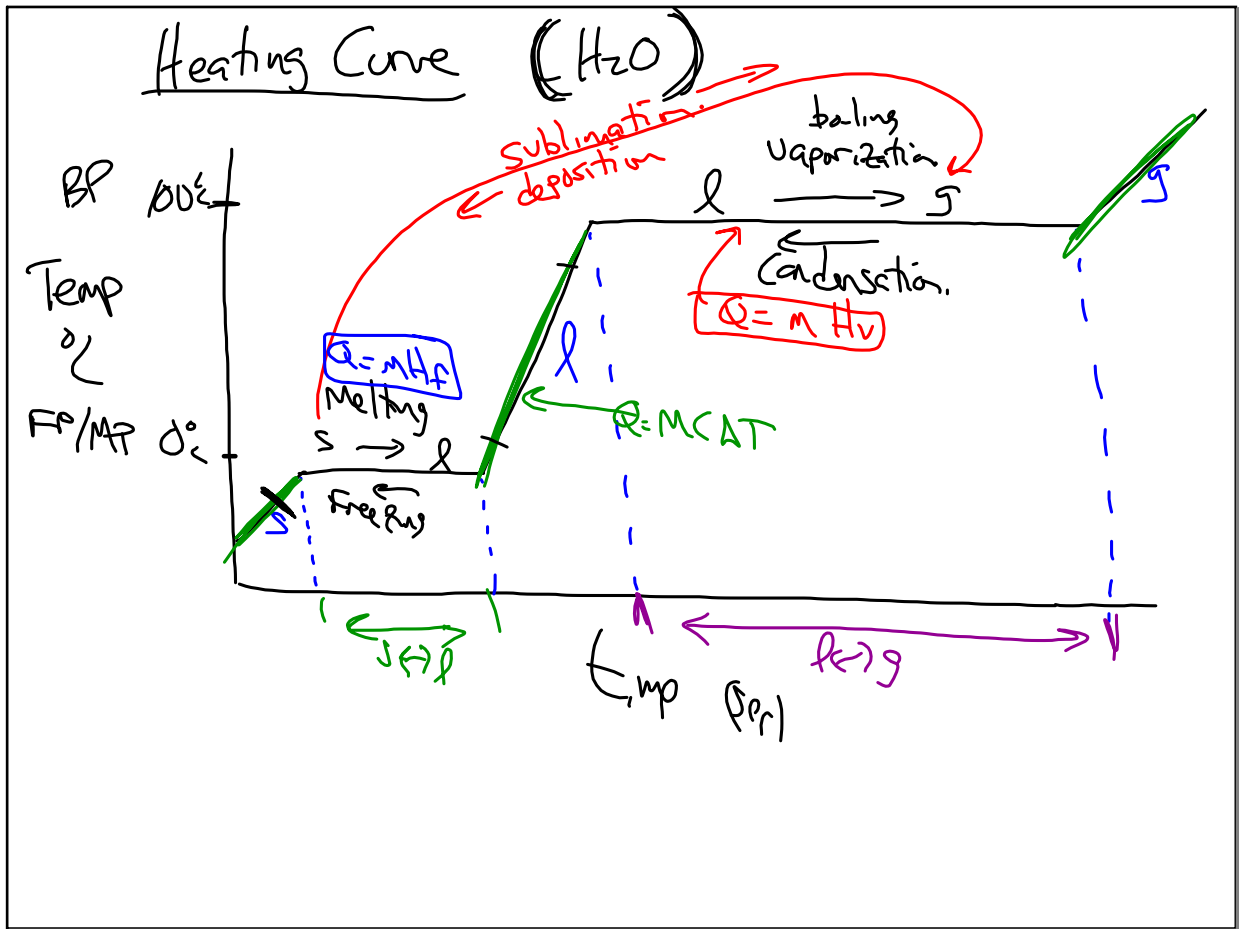 Heating Curve (H₂O)
sublimation.
deposition
boiling
Vaporization
BP 100°c
l → g
g
← Condensation.
Temp
°C
Q = m Hv
Q = mHf
l
Melting
Q = MCΔT
FP/MP 0°c
s → l
← Freezing
s
s ↔ l
l ↔ g